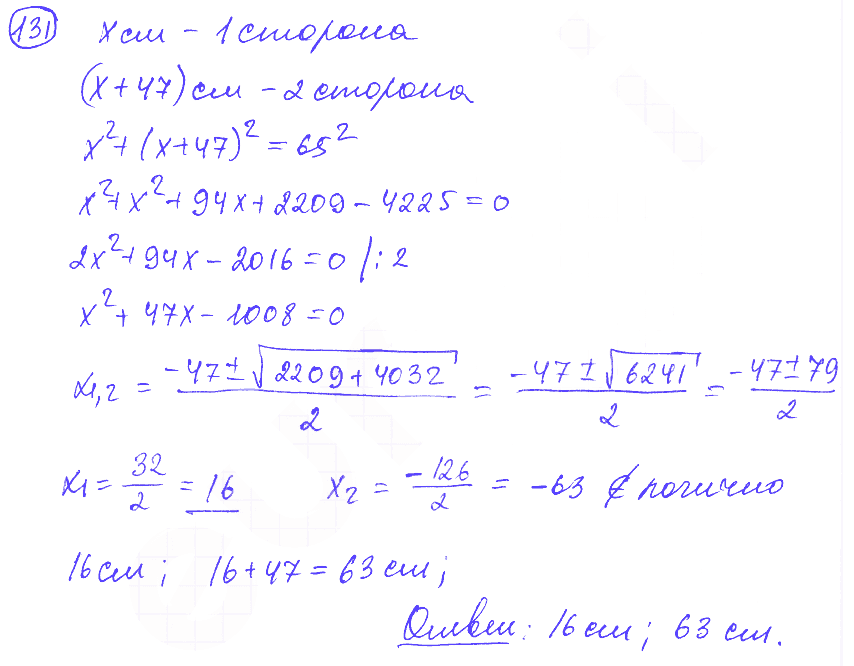 131 x см - 1 сторона
(x+47) см - 2 сторона
x²+(x+47)²=65²
x²+x²+94x+2209-4225=0
2x²+94x-2016=0 /:2
x²+47x-1008=0
x₁,₂ = (-47±√(2209+4032))/2 = (-47±√6241)/2 = (-47±79)/2
x₁ = 32/2 = 16 x₂ = -126/2 = -63 ∉ логично
16 см; 16+47=63 см;
Ответ: 16 см; 63 см.